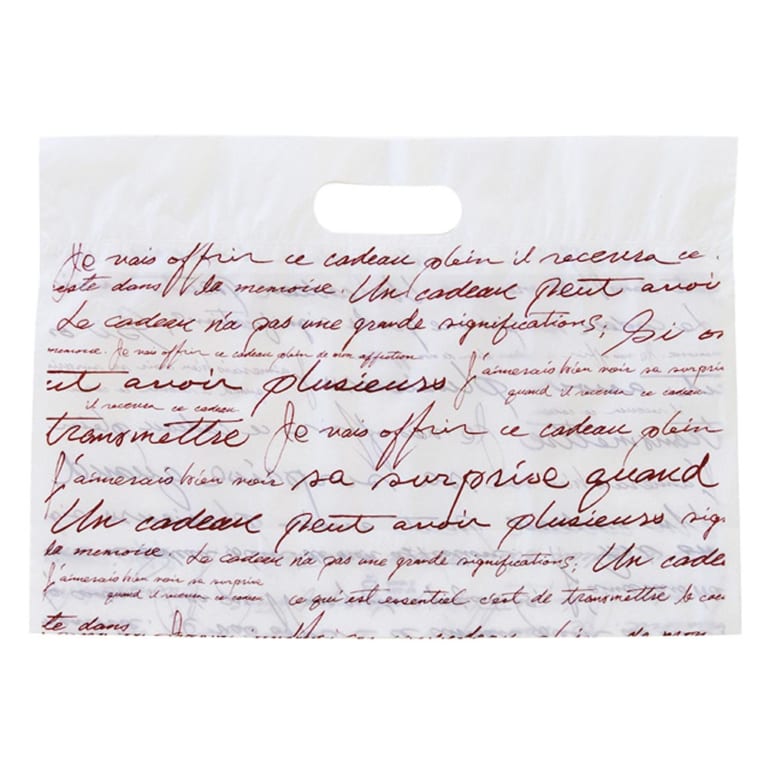 Je vais offrir ce cadeau plein il recevra ce
reste dans la memoire. Un cadeau peut avoi
Le cadeau n'a pas une grande significations; Si on
memoire. Je vais offrir ce cadeau plein de mon affection
J'aimerais bien voir sa surpris
ut avoir plusieurs
quand il recevra ce cadeau
il recevra ce cadeau
transmettre Je vais offrir ce cadeau plein
J'aimerais bien voir sa surprise quand
Un cadeau peut avoir plusieurs sig
la memoire. Le cadeau n'a pas une grande significations; Un cade
J'aimerais bien voir sa surprise
quand il recevra ce cadeau ce qui est essentiel c'est de transmettre le coe
te dans